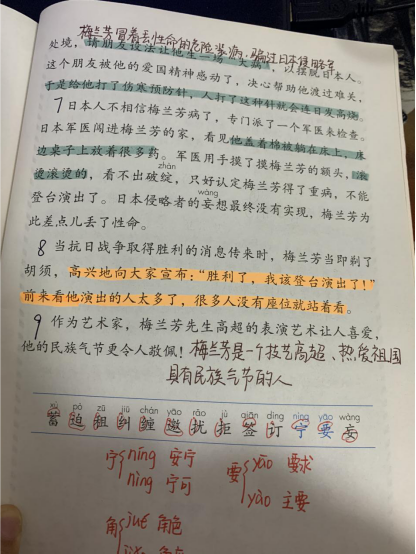 梅兰芳冒着丢性命的危险装病，骗过日本侵略军
处境，请朋友设法让他生一场“大病”，以摆脱日本人。
这个朋友被他的爱国精神感动了，决心帮助他渡过难关，
于是给他打了伤寒预防针，人打了这种针就会连日发高烧。
7日本人不相信梅兰芳病了，专门派了一个军医来检查。
日本军医闯进梅兰芳的家，看见他盖着棉被躺在床上，床
边桌子上放着很多药。军医用手摸了摸梅兰芳的额头，滚
zhàn
烫滚烫的，看不出破绽，只好认定梅兰芳得了重病，不能
wàng
登台演出了。日本侵略者的妄想最终没有实现，梅兰芳为
此差点儿丢了性命。
8 当抗日战争取得胜利的消息传来时，梅兰芳当即剃了
胡须，高兴地向大家宣布：“胜利了，我该登台演出了！”
前来看他演出的人太多了，很多人没有座位就站着看。
9 作为艺术家，梅兰芳先生高超的表演艺术让人喜爱，
他的民族气节更令人敬佩！梅兰芳是一个技艺高超、热爱祖国
具有民族气节的人
xù pò zū jiū chán yāo rǎo jù qiān dìng nìng yào wàng
蓄 迫 租 纠 缠 邀 扰 拒 签 订 宁 要 妄
宁 níng 安宁 要 yāo 要求
nìng 宁可 yào 主要
角 jué 角色